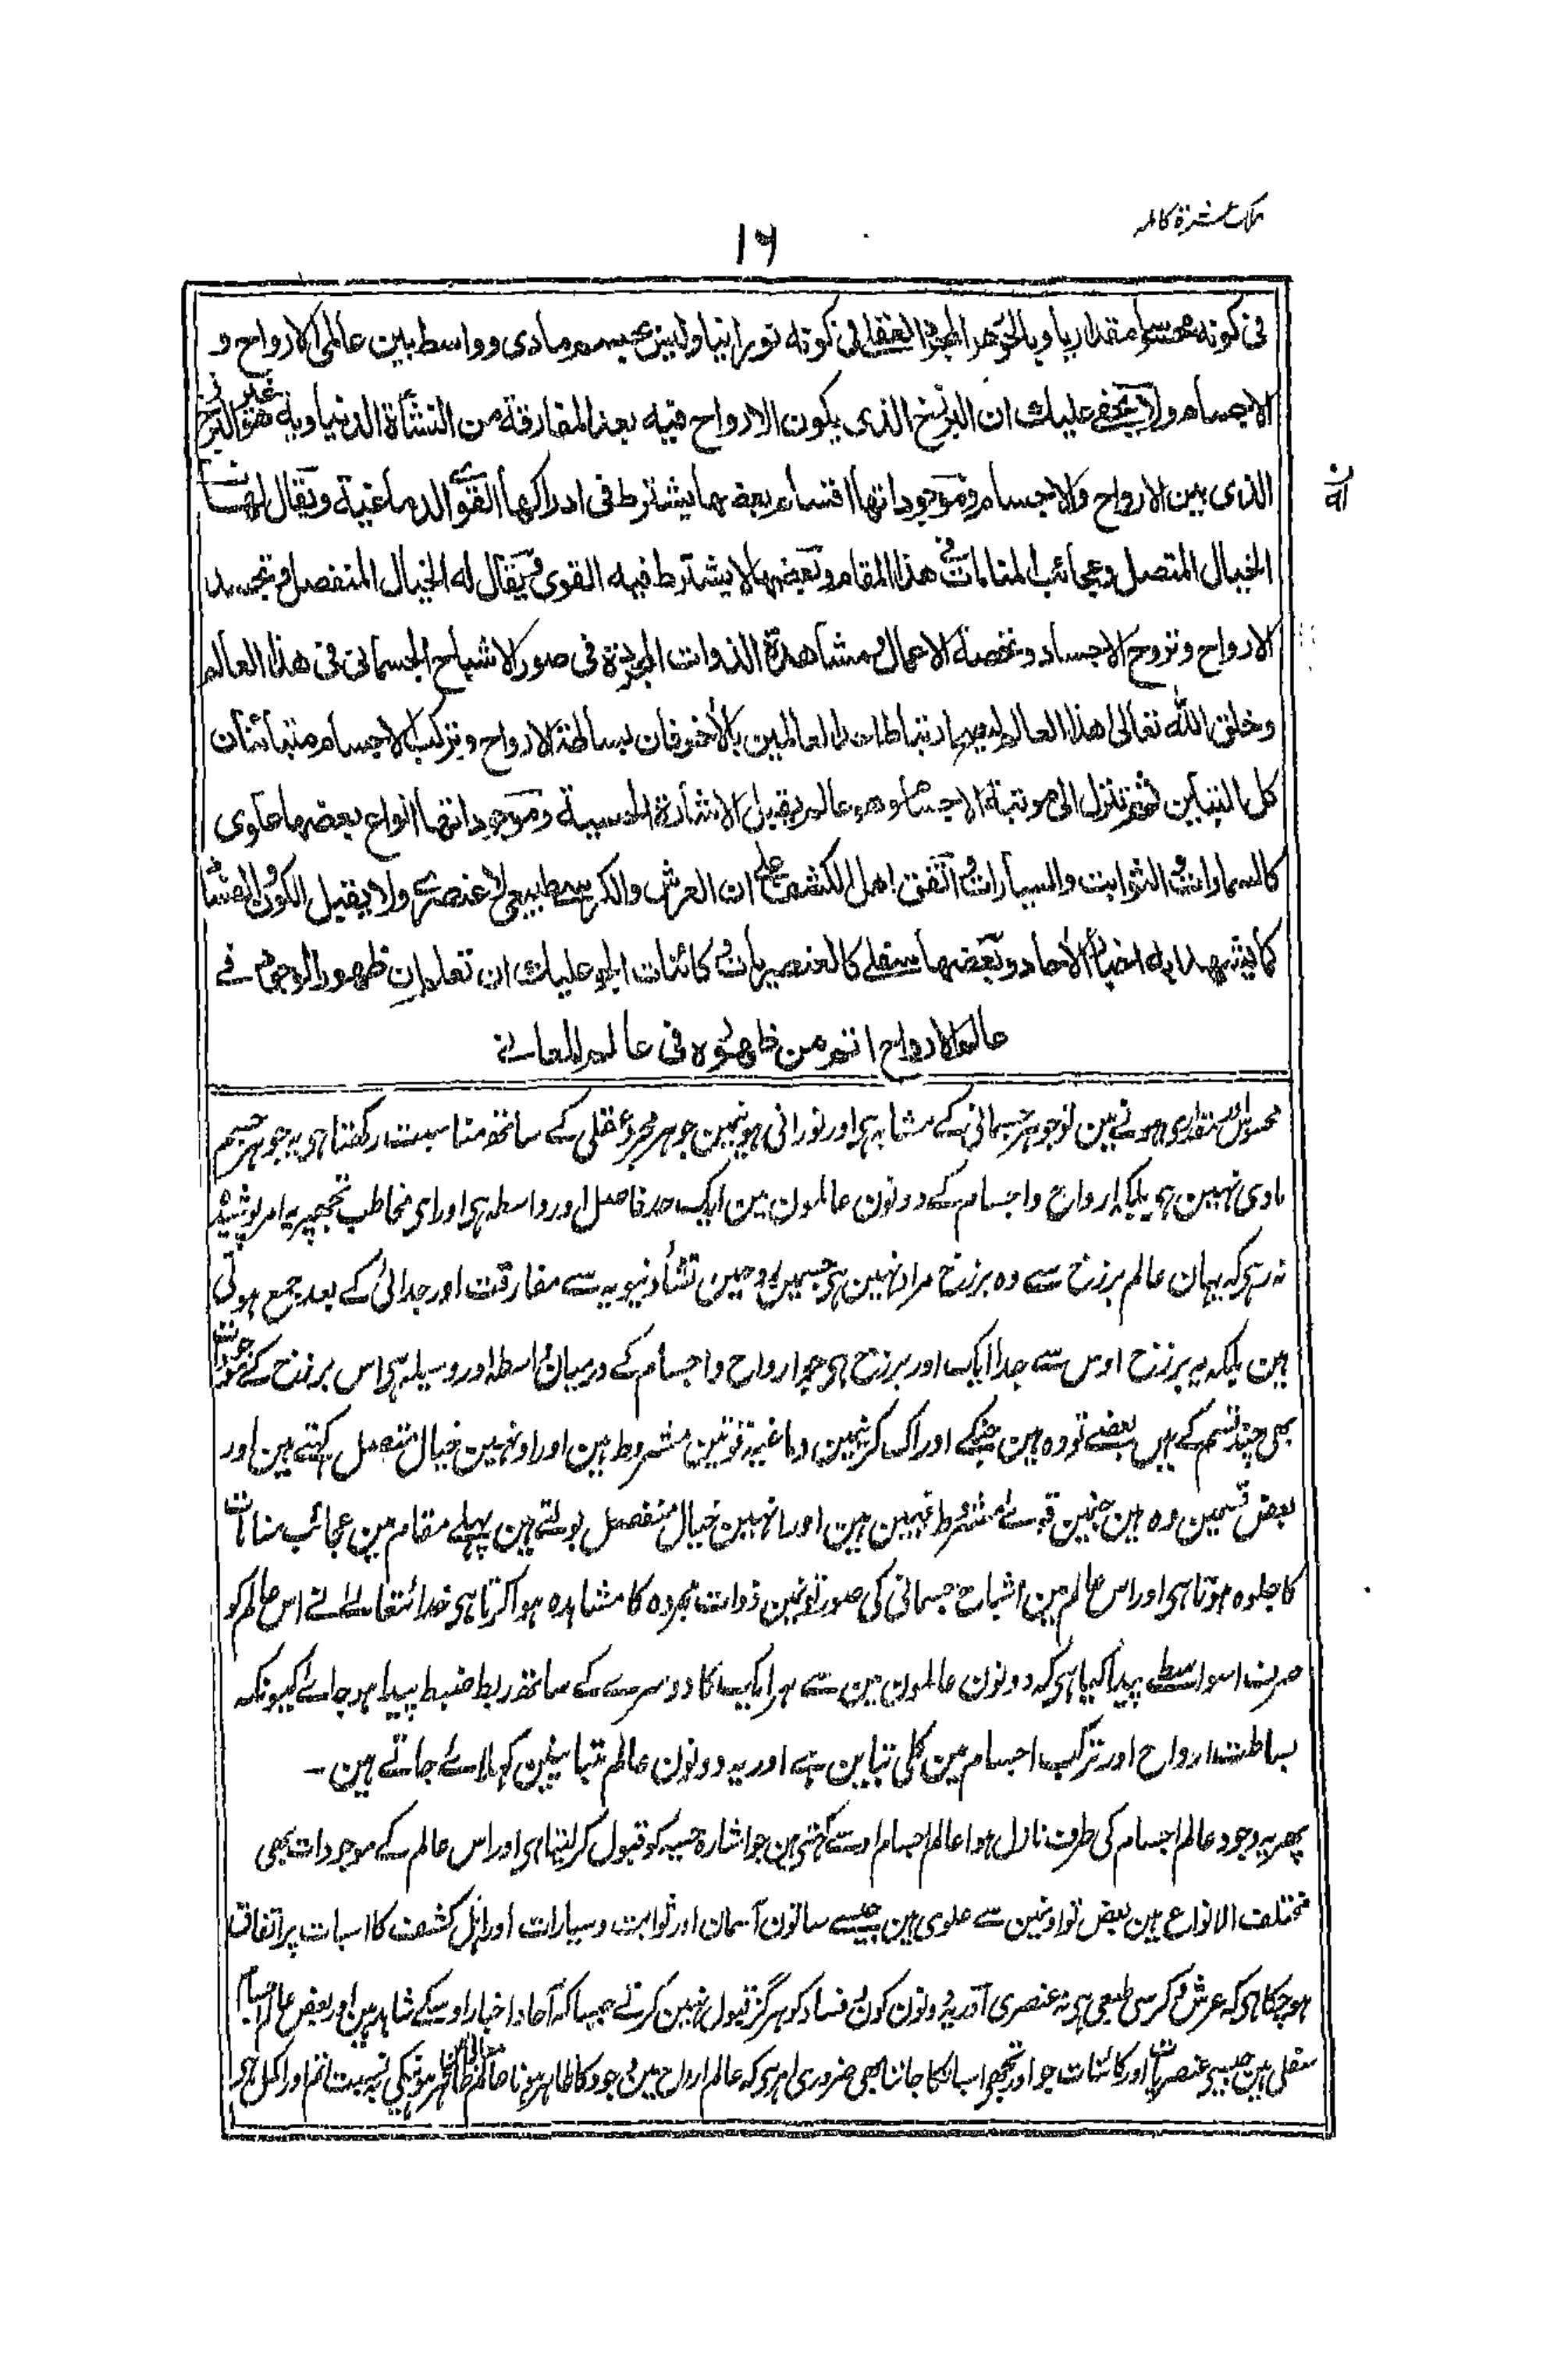 تلک عشرة کاملہ
۱۶
فی کونه محسوسا مقداریا وبالجوهر المجرد العقلی فی کونه نورانیا ولیس بجسم مادی وواسط بین عالمی الارواح و
الاجسام ولا یخفی علیک ان البرزخ الذی یکون الارواح فیه بعد المفارقة من النشأة الدنیاویة هو غیر البرزخ
الذی بین الارواح والاجسام وموجوداتها اقسام بعضها یشترط فی ادراکها القوی الدماغیة ویقال لها
الخیال المتصل وعجائب المنامات فی هذا المقام وبعضها لا یشترط فیه القوی ویقال له الخیال المنفصل وتجسد
الارواح وتروح الاجساد وتشخص الاعمال ومشاهدة الذوات المجردة فی صور الاشباح الجسمانی فی هذا العالم
وخلق الله تعالی هذا العالم ارتباطات العالمین بالآخر فان بساطة الارواح وترکیب الاجسام متبائنان
کل التباین ثم تنزل الی مرتبة الاجسام وهو عالم یقبل الاشارة الحسیة وموجوداتها انواع بعضها علوی
کالسماوات والثوابت والسیارات واتفق اهل الکشف علی ان العرش والکرسی طبیعی لا عنصری ولا یقبل الکون والفساد
کما یشهد به اخبار الآحاد وبعضها سفلی کالعنصریات وکائنات الجو علیک ان تعلم ان ظهور الوجود فی
عالم الارواح اتم من ظهوره فی عالم المعانی
محسوس مقداری ہونے مین تو جوہر جسمانی کے مشابہ ہی اور نورانی ہونیمین جوہر مجرد عقلی کے ساتھ مناسبت رکھتا ہی یہ جوہر جسم
مادی نہین ہی بلکہ ارواح واجسام کے دونون عالمون مین ایک حد فاصل اور واسطہ ہی اور ای مخاطب تجھپر یہ امر پوشیدہ
نہ رہی کہ یہان عالم برزخ سے وہ برزخ مراد نہین ہی جسمین روحین نشأ دنیویہ سے مفارقت اور جدائی کے بعد جمع ہوتی
ہین بلکہ یہ برزخ اوس سے جدا ایک اور برزخ ہی جو ارواح واجسام کے درمیان واسطہ اور وسیلہ ہی اس برزخ کے موجودات
بھی چند قسم کے ہیں بعضے تو وہ ہین جنکے ادراک کرنیمین دماغیہ قوتین مشروط ہین اور اونہین خیال متصل کہتے ہین اور
بعض قسمین وہ ہین جنمین قوی مشروط نہین ہین اور انہین خیال منفصل بولتے ہین پہلے مقام مین عجائب منامات
کا جلوہ ہوتا ہی اور اس عالم مین اشباح جسمانی کی صورتونمین ذوات مجردہ کا مشاہدہ ہوا کرتا ہی خدائتعالے نے اس عالم کو
صرف اسواسطے پیدا کیا ہی کہ دونون عالمون مین سے ہر ایک کا دوسرے کے ساتھ ربط ضبط پیدا ہو جائے کیونکہ
بساطت ارواح اور ترکیب اجسام مین کلی تباین ہے اور یہ دونون عالم متباینین کہلائے جاتے ہین۔
پھر یہ وجود عالم اجسام کی طرف نازل ہوا عالم اجسام اوسے کہتے ہین جو اشارہ حسیہ کو قبول کر لیتا ہی اور اس عالم کے موجودات بھی
مختلف الانواع ہین بعض تو اونمین سے علوی ہین جیسے ساتون آسمان اور ثوابت وسیارات اور اہل کشف کا اسبات پر اتفاق
ہو چکا ہی کہ عرش و کرسی طبیعی ہی نہ عنصری اور یہ دونون کون و فساد کو ہرگز قبول نہین کرتے جیسا کہ آحاد اخبار اوسکے شاہد ہین اور بعض عالم اجسام
سفلی ہین جیسے عنصریات اور کائنات جو اور تجھے اسبات کا جاننا بھی ضروری امر ہی کہ عالم ارواح مین وجود کا ظاہر ہونا عالم معانی مین ظاہر ہونیکی بہ نسبت اتم اور اکمل ہی